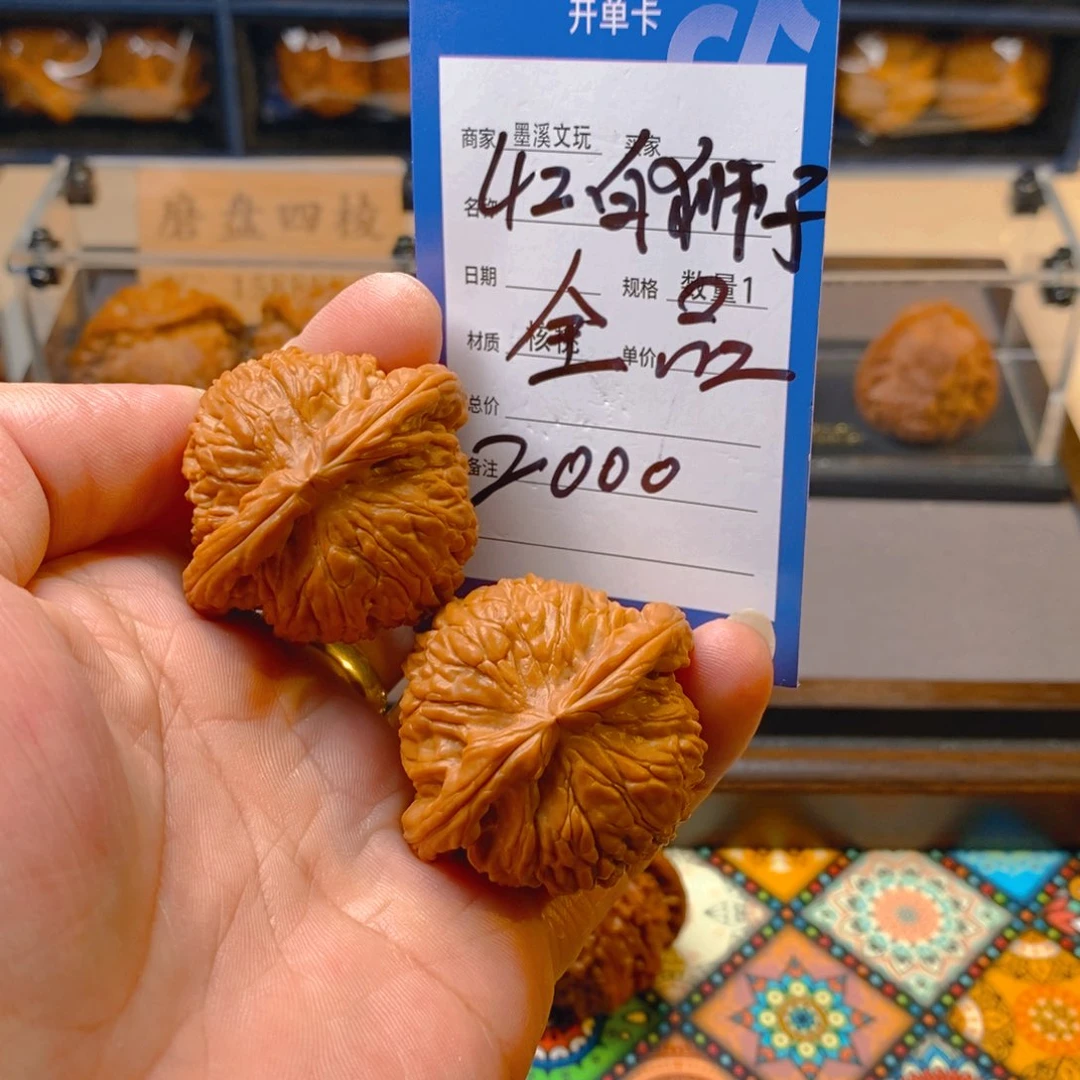 开单卡
商家 墨溪文玩 买家
名称 42白狮子
日期 规格 数量1
材质 核桃 单价
全品
总价
备注 2000
磨盘四棱